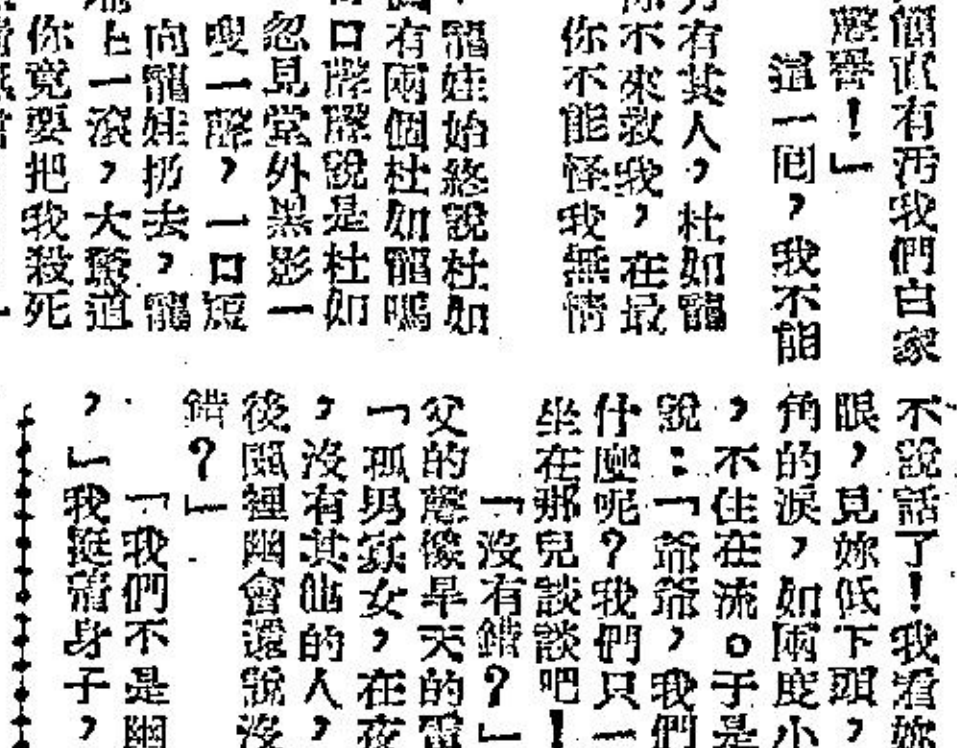 簡直有污我們白家
聲譽！」
這一回，我不能
有其人，杜如龍
你不來救我，在最
你不能怪我無情
龍娃始終說杜如
有兩個杜如龍嗎
口聲聲說是杜如
忽見堂外黑影一
嗖一聲，一口短
向龍娃扔去，龍
上一滾，大驚道
你竟要把我殺死
不說話了！我看妳
眼，見妳低下頭，
角的淚，如兩度小
，不住在流。于是
說：「爺爺，我們
什麼呢？我們只一
坐在那兒談談吧！
「沒有錯？」
父的聲像旱天的雷
「孤男寡女，在夜
，沒有其他的人，
後園裡幽會還說沒
錯？」
「我們不是幽
，」我挺着身子，